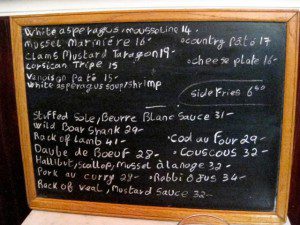 White asperagus, mousseline 14.
Mussel Marinière 16-
• country Pâté 17
Clams Mustard Taragon 19-
Corsican Tripe 15
• cheese plate 16-
Venaison Paté 15-
White asparagus soup, shrimp
Side Fries 6.50
Stuffed Sole, Beurre Blanc Sauce 31-
Wild Boar Shank 29-
• Cod au Four 29-
Rack of Lamb 41-
Daube de Boeuf 28-
• Couscous 32-
Hallibut, scallop, Mussel à la nage 32-
Pork au curry 29-
• Rabbi 34-
Rack of veal, Mustard Sauce 32-